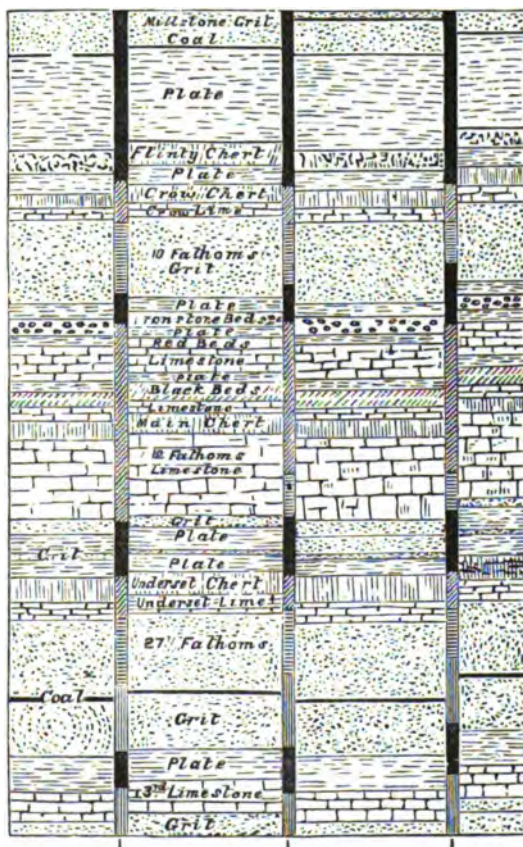 Millstone Grit
Coal
Plate
Flinty Chert
Plate
Crow Chert
Crow Lime
10 Fathoms
Grit
Plate
Ironstone Beds
Plate
Red Beds
Limestone
Plate
Black Beds
Limestone
Main Chert
12 Fathoms
Limestone
Grit
Plate
Grit
Plate
Underset Chert
Underset Lime
27 Fathoms
Coal
Grit
Plate
3rd Limestone
Grit